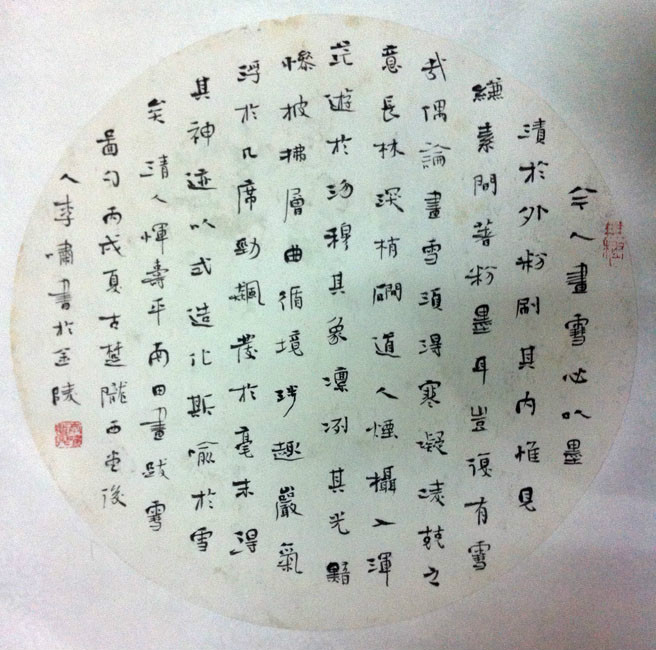 今人畫雪必以墨
漬於外粉刷其內惟見
縑素間著粉墨耳豈復有雪
哉偶論畫雪須得寒凝凌兢之
意長林深梢磵道人煙攝入渾
茫遊於沕穆其象凛冽其光黯
慘披拂層曲循境涉趣巖氣
浮於几席勁飆發於毫末得
其神迹以式造化斯喻於雪
矣 清人惲壽平南田畫跋雪
圖句丙戌夏古楚隴西堂後
人李嘯書於金陵